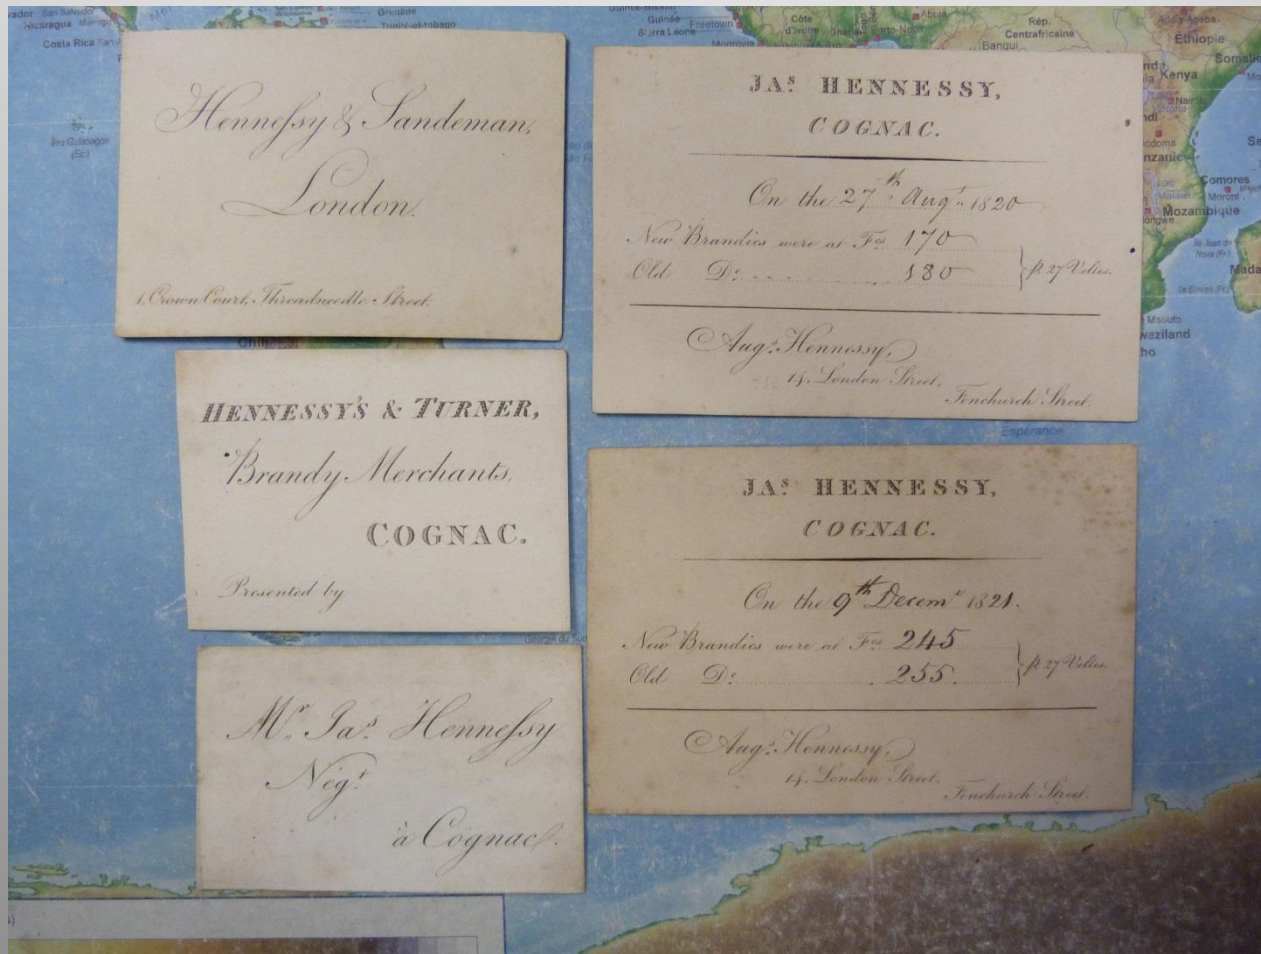 Hennessy & Sandeman,
London.
1, Crown Court, Threadneedle Street.
HENNESSY'S & TURNER,
Brandy Merchants,
COGNAC.
Presented by
Mr. Jas. Hennessy
Négt.
à Cognac.
JAS. HENNESSY,
COGNAC.
On the 27th Augt. 1820
New Brandies were at Fcs. 170
Old Do. 180
pr 27 Veltes.
Augs. Hennessy,
14, London Street,
Fenchurch Street.
JAS. HENNESSY,
COGNAC.
On the 9th Decemr 1821.
New Brandies were at Fcs. 245
Old Do. 255.
pr 27 Veltes.
Augs. Hennessy,
14, London Street,
Fenchurch Street.
Nicaragua
Costa Rica
Grenade
Trinité-et-tobago
Guinée
Freetown
Sierra Leone
Côte
d'Ivoire
Ghana
Porto-Novo
Abuja
Rép.
Centrafricaine
Bangui
Addis Abeba
Ethiopie
Somalie
Kenya
Comores
Moroni
Mozambique
Chili
Espérance